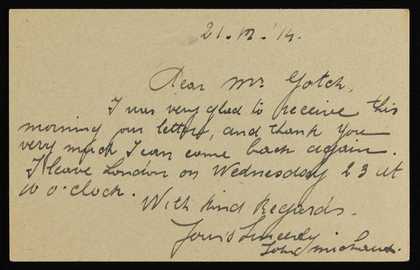 21.12.'14.
Dear Mr Gotch,
I was very glad to receive this
morning our letter, and thank you
very much I can come back again.
I leave London on Wednesday 23 at
10 o'clock.
With kind Regards.
Yours Sincerely
John